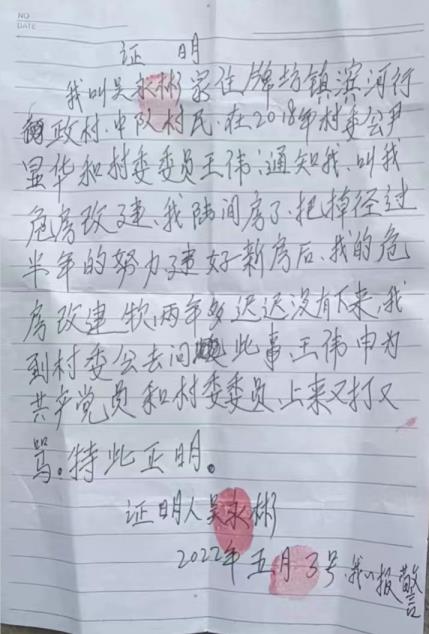 NO
DATE
证 明
我叫吴永彬家住牌坊镇滨河行
政村.中队村民.在2018年村委会尹
显华和村委委员王伟,通知我,叫我
危房改建、我陆间房子.把掉径过
半年的努力建好新房后、我的危
房改建 款,两年多迟迟没有下来,我
到村委会去问 此事,王伟申为
共产党员和村委委员、上来又打又
骂.特此正明。
证明人吴永彬
2022年五月3号.我以报警